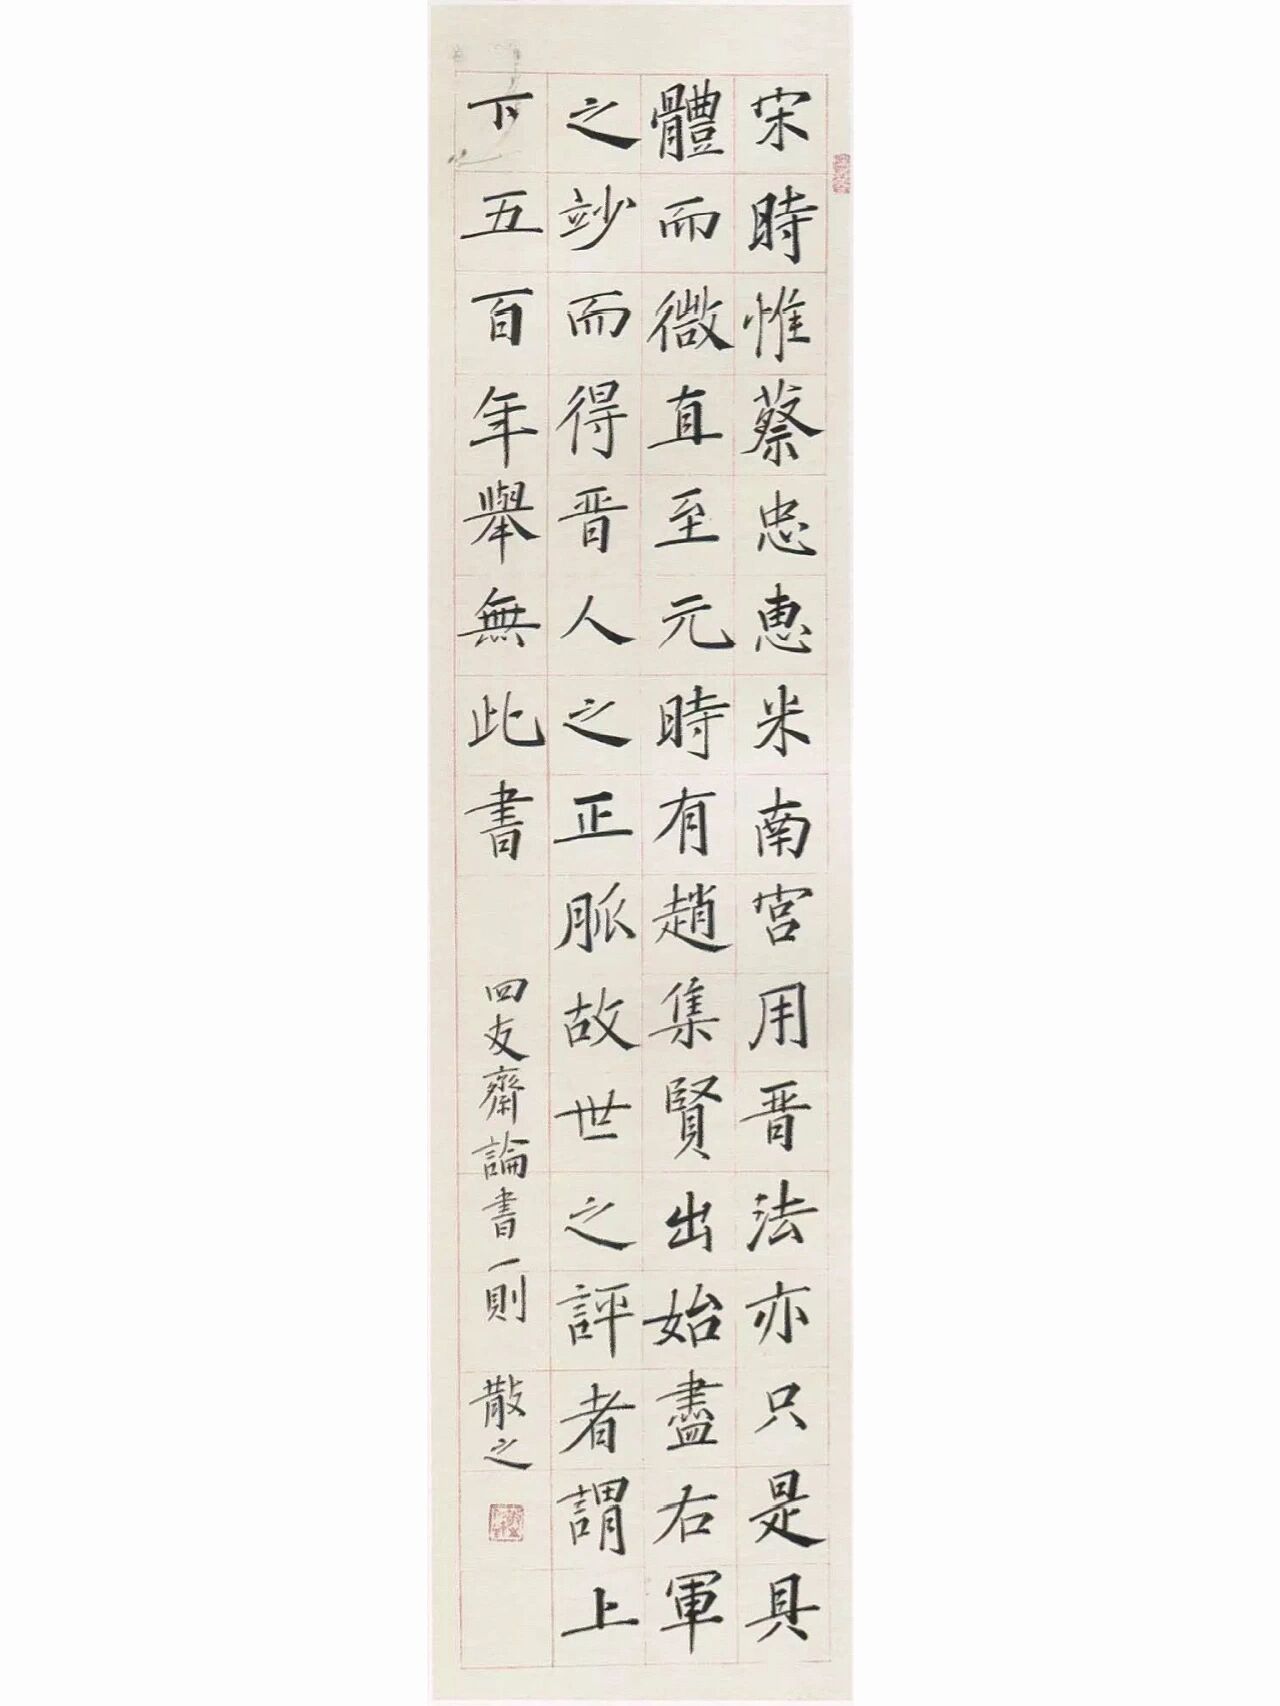 宋時惟蔡忠惠米南宮用晋法亦只是具
體而微直至元時有趙集賢出始盡右軍
之竗而得晋人之正脈故世之評者謂上
下五百年舉無此書
四友齋論書一則
散之